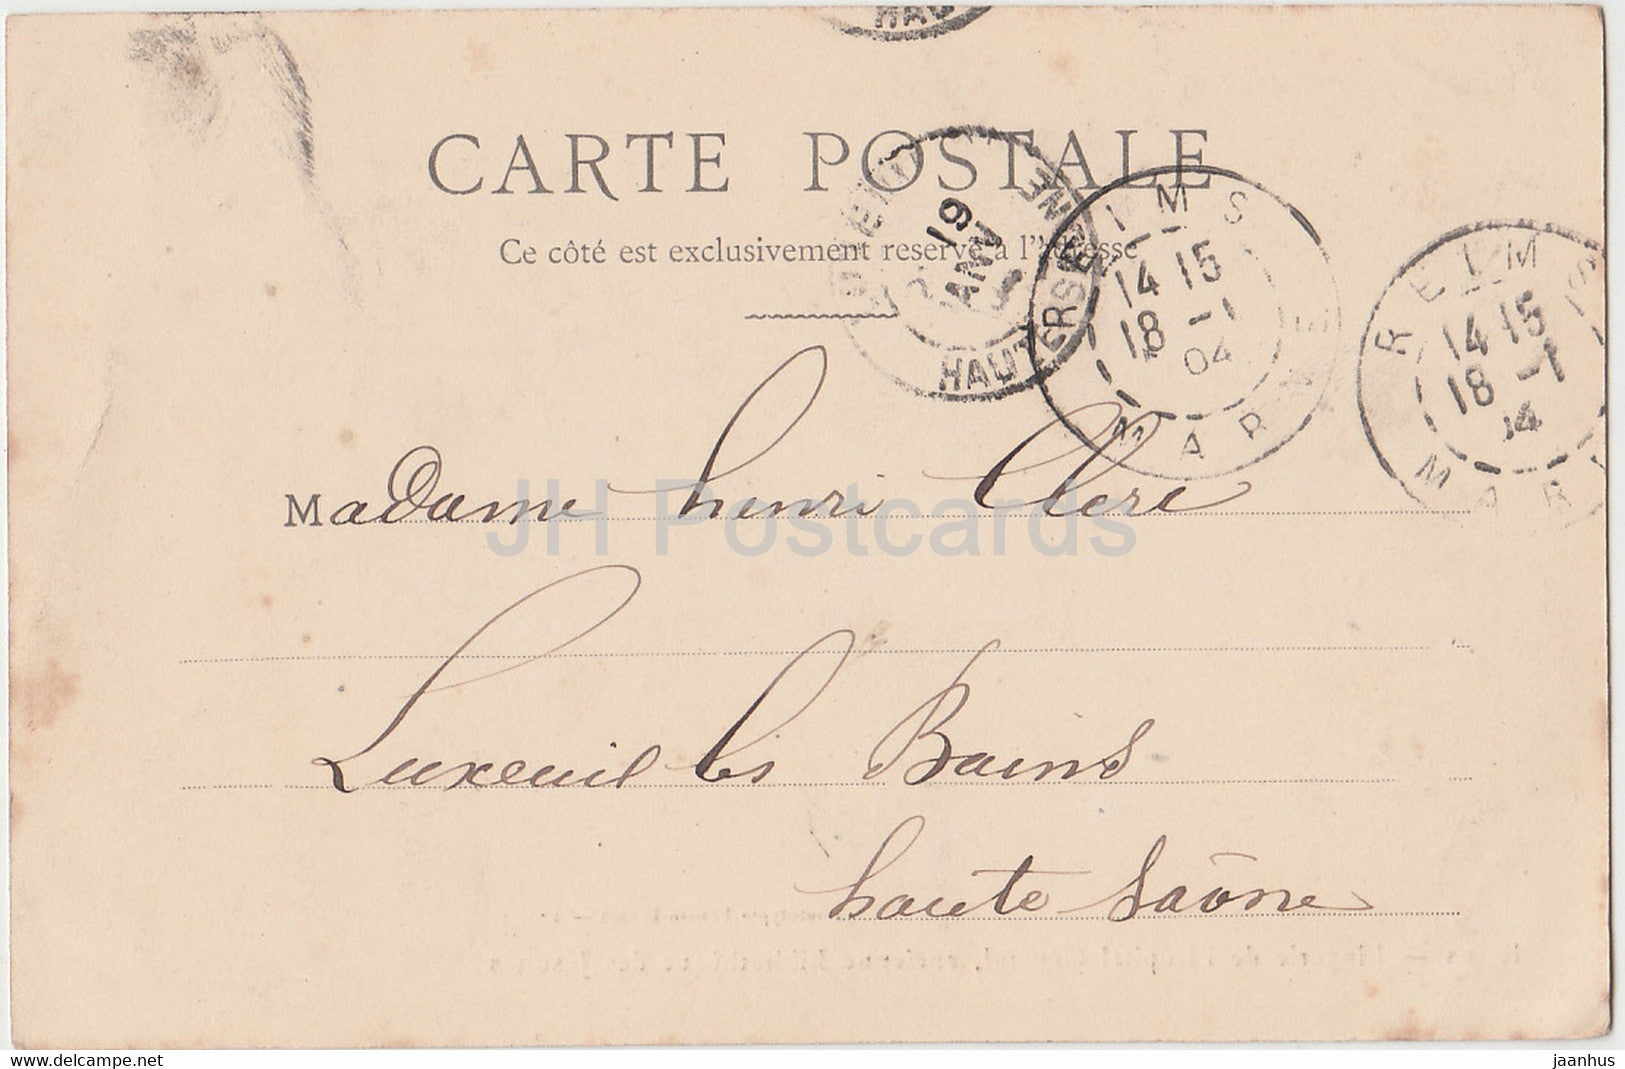 HAU
CARTE POSTALE
Ce côté est exclusivement reservé à l'adresse
19
JANV
HAUTE
REIMS
14 15
18 -1
04
MARNE
REIMS
14 15
18 -1
04
MAR
Madame henri Clerc
Luxeuil les Bains
haute Saône
JH Postcards
www.delcampe.net
jaanhus